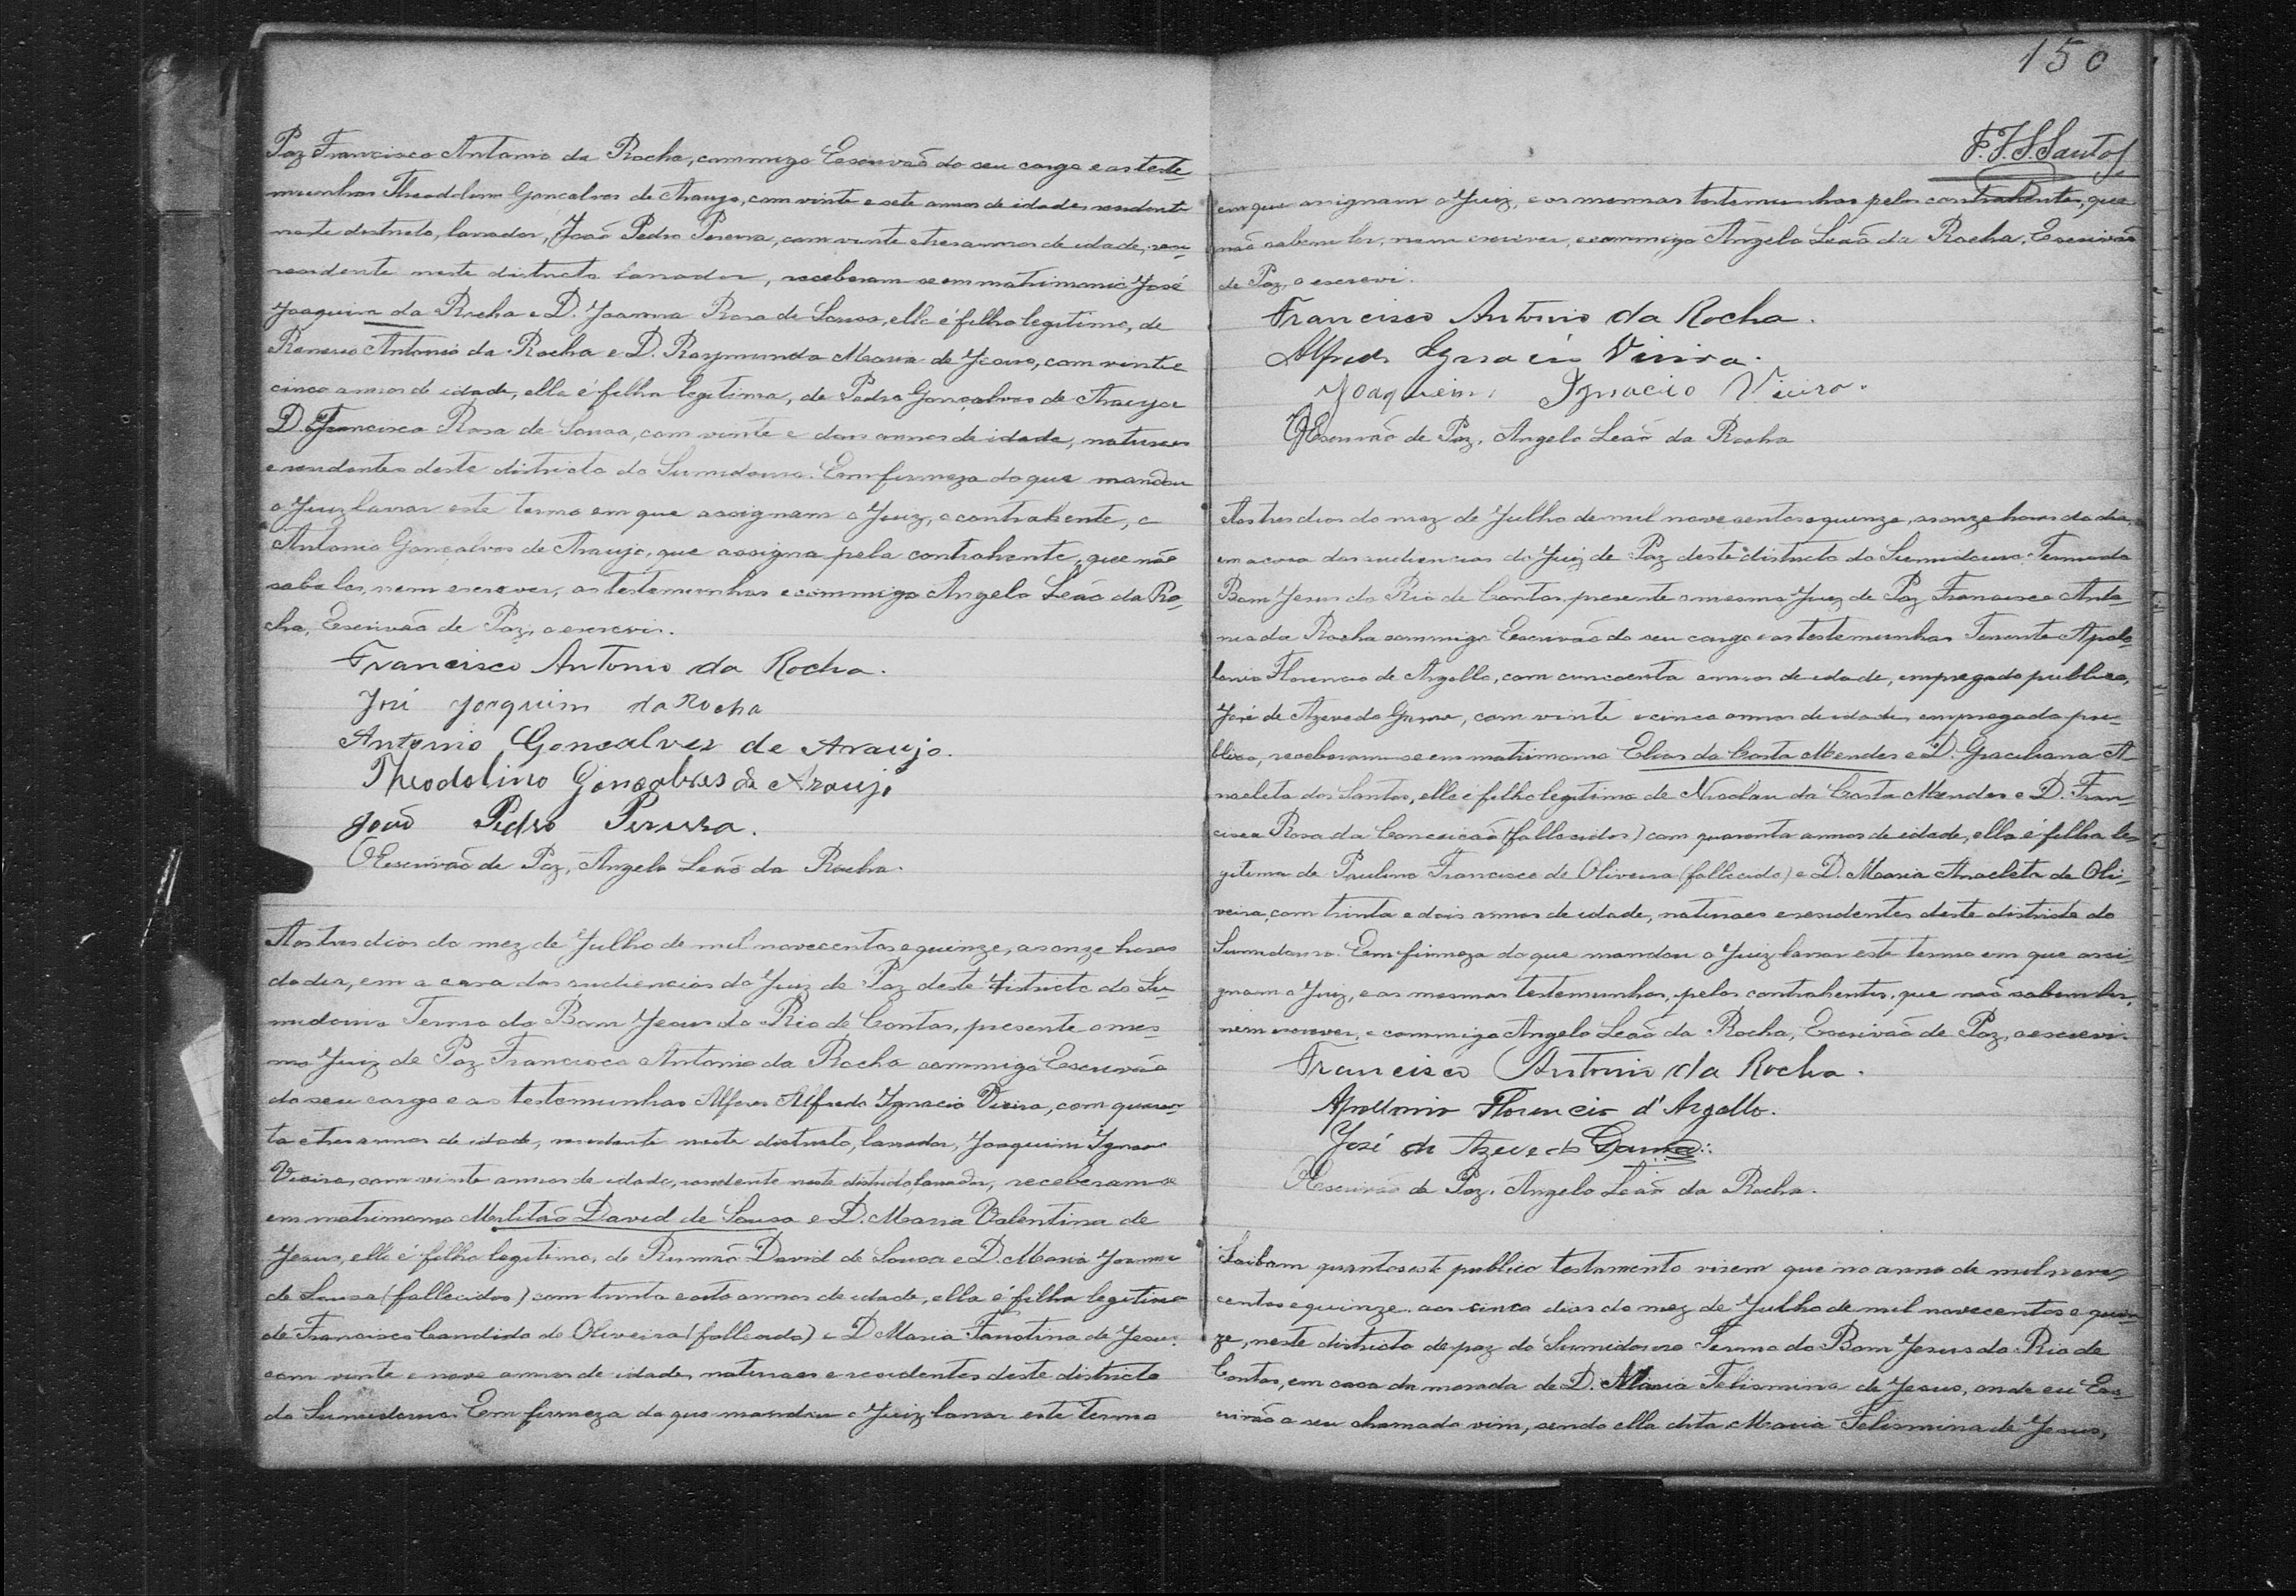 Paz Francisco Antonio da Rocha, commigo Escrivão do seu cargo e as teste-
munhas Theodolino Gonçalves de Araujo, com vinte e sete annos de idade, residente
neste destricto, lavrador, João Pedro Pereira, com vinte e tres annos de idade,
residente neste districto lavrador, receberam-se em matrimonio José
Joaquim da Rocha e D. Joanna Rosa de Sousa, elle é filho legitimo, de
Antonio da Rocha e D. Raymunda Maria de Jesus, com vinte e
cinco annos de idade, ella é filha legitima, de Pedro Gonçalves de Araujo e
D. Francisca Rosa de Sousa, com vinte e dous annos de idade, naturaes
e residentes deste districto do Sumidouro. Em firmeza do que mandou
o Juiz lavrar este termo em que assignam o Juiz, o contrahente, e
Antonio Gonçalves de Araujo, que assigna pela contrahente, que não
sabe ler, nem escrever, as testemunhas e commigo Angelo Leão da Ro-
cha, Escrivão de Paz, o escrevi.
Francisco Antonio da Rocha.
José Joaquim da Rocha
Antonio Gonsalves de Araujo.
Theodolino Gonsalves de Araujo
João Pedro Pereira.
O Escrivão de Paz, Angelo Leão da Rocha.
Aos tres dias do mez de Julho de mil novecentos e quinze, as onze horas
do dia, em a casa das audiencias do Juiz de Paz deste districto do Su-
midouro Termo do Bom Jesus do Rio de Contas, presente o mes-
mo Juiz de Paz Francisco Antonio da Rocha commigo Escrivão
do seu cargo e as testemunhas Alferes Alfredo Ignacio Vieira, com quaren-
ta e tres annos de idade, residente neste districto, lavrador, Joaquim Ignacio
Vieira, com vinte annos de idade, residente neste districto, lavrador, receberam-se
em matrimonio Melitão David de Sousa e D. Maria Valentina de
Jesus, elle é filho legitimo, de Rumão David de Sousa e D. Maria Joanna
de Sousa (fallecidos) com trinta e oito annos de idade, ella é filha legitima
de Francisco Candido de Oliveira (fallecido) e D. Maria Faustina de Jesus,
com vinte e nove annos de idade, naturaes e residentes deste districto
do Sumidouro. Em firmeza do que mandou o Juiz lavrar este termo
150
F. J. S. Santos
em que assignam o Juiz, e as mesmas testemunhas pelos contrahentes, que
não sabem ler, nem escrever, e commigo Angelo Leão da Rocha, Escrivão
de Paz, o escrevi.
Francisco Antonio da Rocha.
Alfredo Ignacio Vieira.
Joaquim Ignacio Vieira.
O Escrivão de Paz, Angelo Leão da Rocha
Aos tres dias do mez de Julho de mil novecentos e quinze, as onze horas do dia,
em a casa das audiencias do Juiz de Paz deste districto do Sumidouro Termo do
Bom Jesus do Rio de Contas, presente o mesmo Juiz de Paz Francisco Anto-
nio da Rocha commigo Escrivão do seu cargo e as testemunhas Tenente Apolo-
lonio Florencio de Argollo, com cincoenta annos de idade, empregado publico,
José de Azevedo Gama, com vinte e cinco annos de idade, empregado pu-
blico, receberam-se em matrimonio Elias da Costa Mendes e D. Graciliana A-
nacleta dos Santos, elle é filho legitimo de Nicolau da Costa Mendes e D. Fran-
cisca Rosa da Conceição (fallecidos) com quarenta annos de idade, ella é filha le-
gitima de Paulino Francisco de Oliveira (fallecido) e D. Maria Anacleta de Oli-
veira, com trinta e dois annos de idade, naturaes e residentes deste districto do
Sumidouro. Em firmeza do que mandou o Juiz lavrar este termo em que assi-
gnam o Juiz, e as mesmas testemunhas, pelos contrahentes, que não sabem ler,
nem escrever, e commigo Angelo Leão da Rocha, Escrivão de Paz, o escrevi.
Francisco Antonio da Rocha.
Apollonio Florencio d'Argollo.
José de Azevedo Gama
O Escrivão de Paz. Angelo Leão da Rocha.
Saibam quantos este publico testamento virem que no anno de mil nove-
centos e quinze aos cinco dias do mez de Julho de mil novecentos e quin-
ze, neste districto de paz do Sumidouro Termo do Bom Jesus do Rio de
Contas, em casa da morada de D. Maria Felismina de Jesus, onde eu Es-
crivão a seu chamado vim, sendo ella dita Maria Felismina de Jesus,